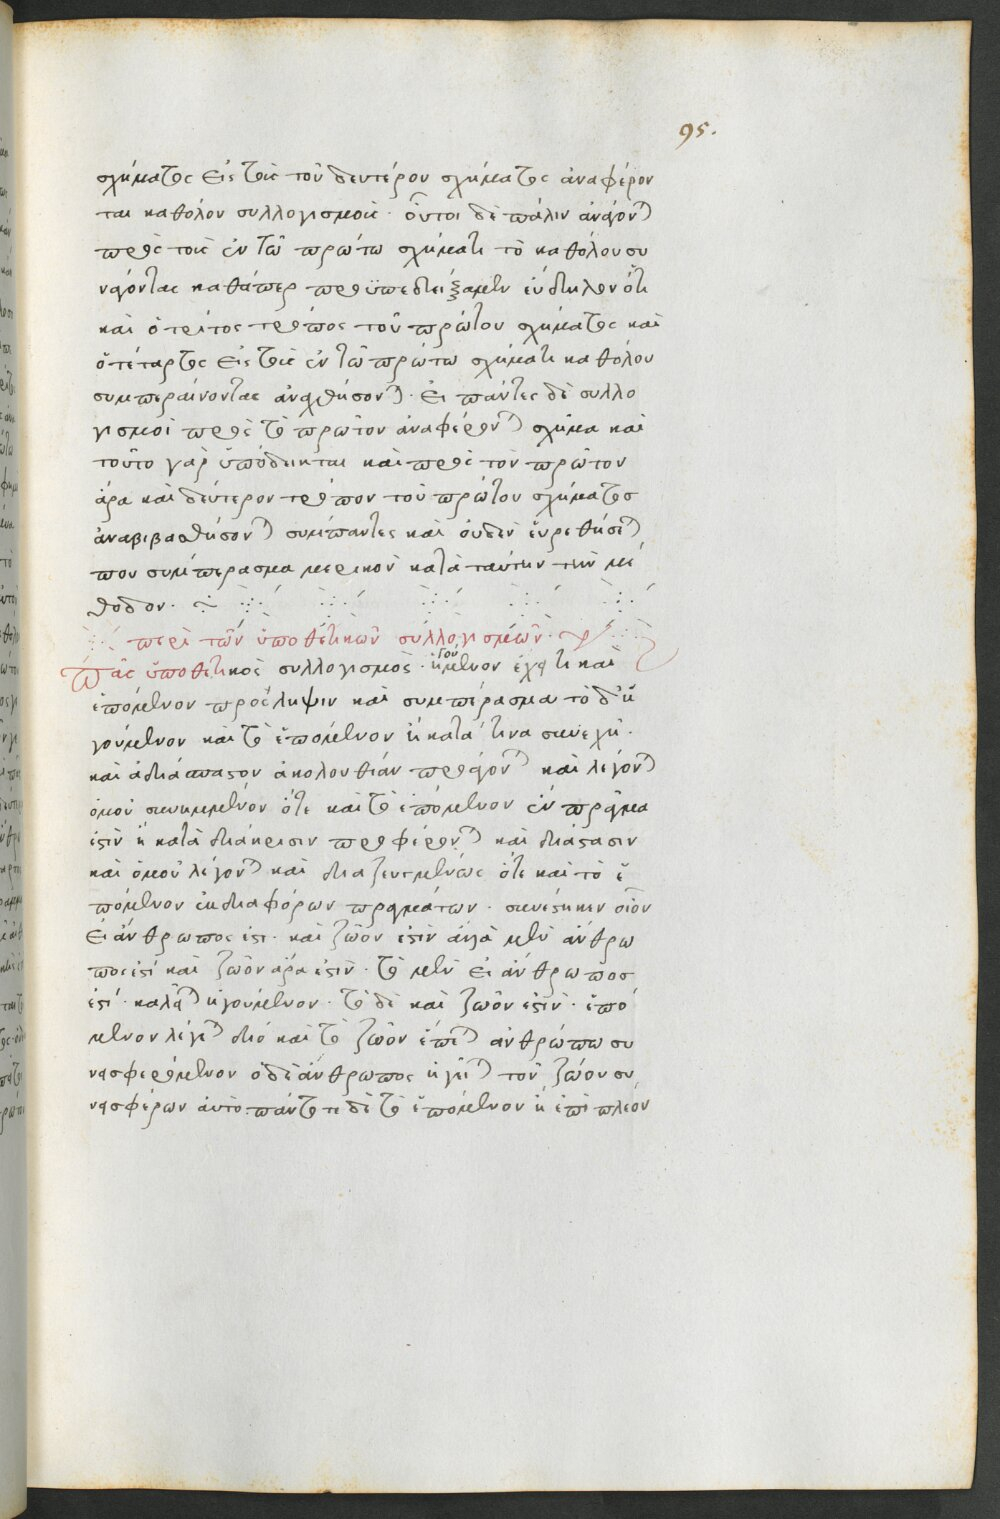 95.
σχήματος εἰς τοὺς τοῦ δευτέρου σχήματος ἀναφέρον
ται καθόλου συλλογισμοὺς· οὗτοι δὲ πάλιν ἀνάγον)
πρὸς τοὺς ἐν τῶ πρώτω σχήματι τὸ καθόλου συ
νάγοντας καθάπερ προϋπεδείξαμεν εὔδηλον ὅτι
καὶ ὁ τρίτος τρόπος τοῦ πρώτου σχήματος καὶ
ὁ τέταρτος εἰς τοὺς ἐν τῶ πρώτω σχήματι καθόλου
συμπεραίνοντας ἀναχθήσον)· εἰ πάντες δὲ συλλο
γισμοὶ πρὸς τὸ πρῶτον ἀναφέρον) σχῆμα καὶ
τοῦτο γὰρ ὑπόδεικται καὶ πρὸς τὸν πρῶτον
ἄρα καὶ δεύτερον τρόπον τοῦ πρώτου σχήματος
ἀναβιβασθήσον) σύμπαντες καὶ οὐδὲν εὑρεθήσε)
που συμπέρασμα μερικὸν κατὰ ταύτην τὴν μέ
θοδον·
περὶ τῶν ὑποθετικῶν συλλογισμῶν·
Πᾶς ὑποθετικὸς συλλογισμὸς· ἡγούμενον ἔχει τι καὶ
ἑπόμενον πρόσληψιν καὶ συμπέρασμα τὸ δ' ἡ
γούμενον καὶ τὸ ἑπόμενον ἢ κατά τινα συνεχῆ·
καὶ ἀδιάσπαστον ἀκολουθίαν προάγον) καὶ λέγον)
ὁμοῦ συνημμένον ὅτε καὶ τὸ ἑπόμενον ἓν πρᾶγμα
ἐστὶν ἢ κατὰ διάκρισιν προφέρον) καὶ διάστασιν
καὶ ὁμοῦ λέγον) καὶ διαζευγμένως ὅτε καὶ τὸ ἑ
πόμενον ἐκ διαφόρων πραγμάτων· συνέστηκεν οἷον
εἰ ἄνθρωπος ἐστὶ· καὶ ζῶον ἐστὶν ἀλλὰ μὲν ἄνθρω
πος ἐστὶ καὶ ζῶον ἄρα ἐστὶν· τὸ μὲν εἰ ἄνθρωπος
ἐστὶ· καλεῖ) ἡγούμενον· τὸ δὲ καὶ ζῶον ἐστὶν· ἑπό
μενον λέγε) διὸ καὶ τὸ ζῶον ἕπε) ἀνθρώπω συ
νεισφερόμενον ὁ δὲ ἄνθρωπος ἡγεῖ) τοῦ ζώου συ
νεισφέρων αὐτὸ πάντοτε δὲ τὸ ἑπόμενον ἢ ἐπὶ πλέον